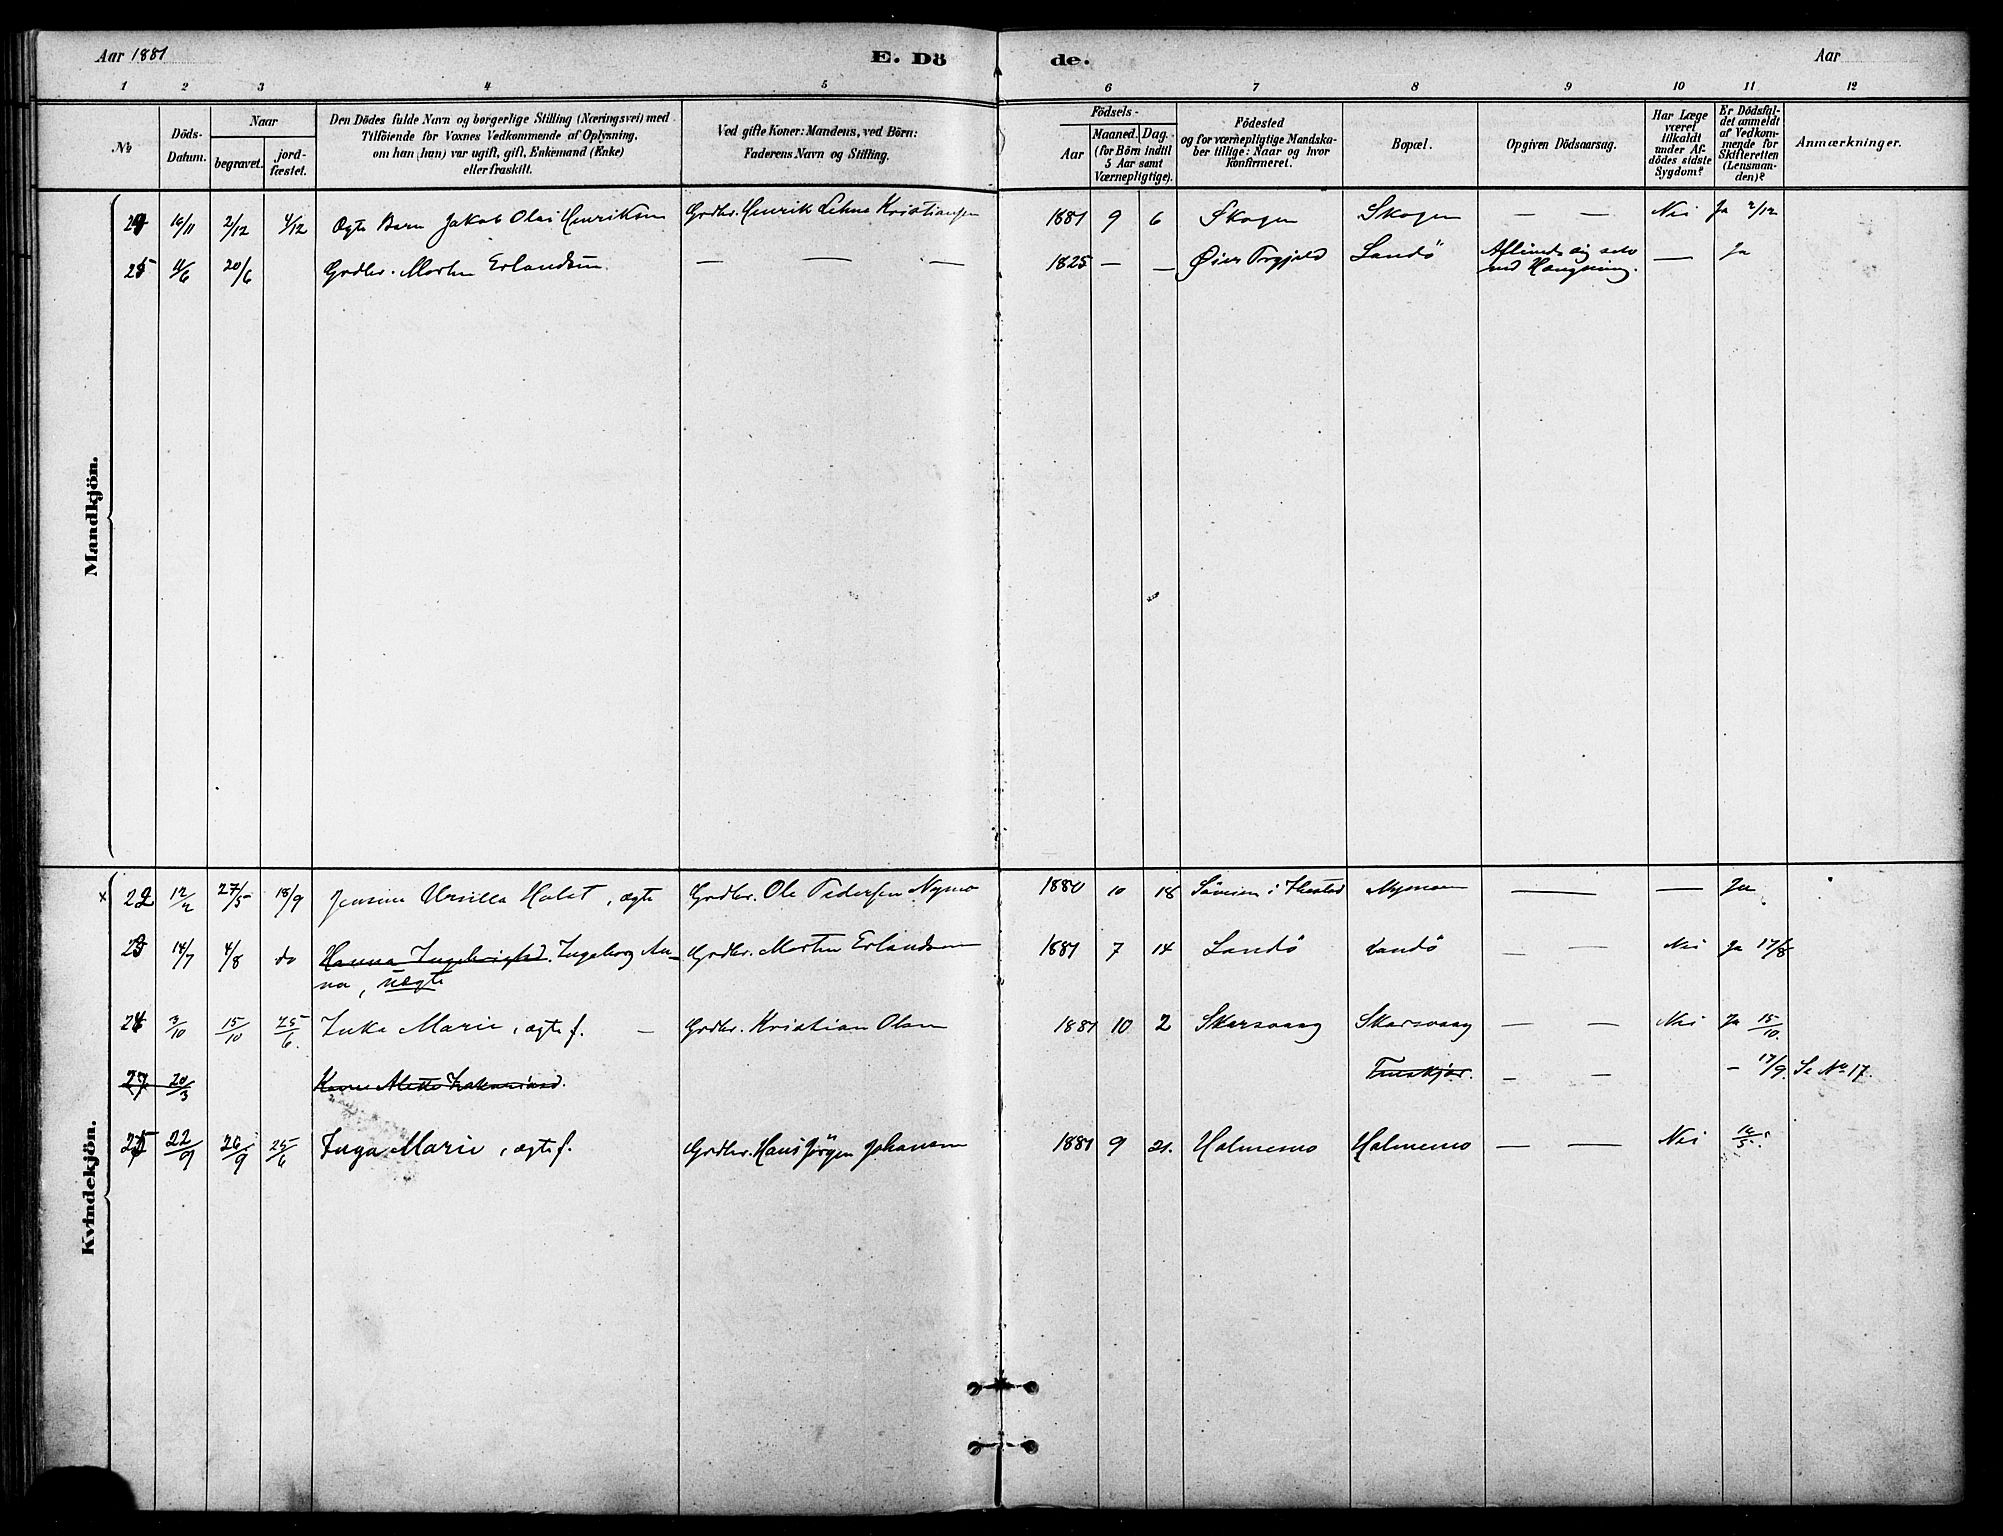 Aar 1881
E. Dö
de.
Aar
1 2 3 4 5 6 7 8 9 10 11 12
No
Döds-
Datum.
Naar
begravet.
jord-
fæstet.
Den Dödes fulde Navn og borgerlige Stilling (Næringsvei) med
Tilföiende for Voxnes Vedkommende af Oplysning,
om han (hun) var ugift, gift, Enkemand (Enke)
eller fraskilt.
Ved gifte Koner: Mandens, ved Börn:
Faderens Navn og Stilling.
Födsels-
Aar
Maaned.
Dag.
(for Börn indtil
5 Aar samt
Værnepligtige).
Födested
og for værnepligtige Mandska-
ber tillige: Naar og hvor
konfirmeret.
Bopæl.
Opgiven Dödsaarsag.
Har Læge
været
tilkaldt
under Af-
dödes sidste
Sygdom?
Er Dödsfal-
det anmeldt
af Vedkom-
mende for
Skifteretten
(Lensman-
den)?
Anmærkninger.
Mandkjön.
24 16/11 2/12 4/12 Ægte Barn Jakob Olai Henriksen Grdbr. Henrik Lehne Kristiansen 1881 9 6 Skogen Skogen — — Nei Ja 2/12
25 4/6 20/6 Grdbr. Morten Erlandsen — — — 1825 — — Øier Landö Aflivede sig selv — Ja
ved Hængning.
Kvindekjön.
x 22 12/4 27/5 18/9 Jensine Ursilla Holst, ægte Grdbr. Ole Pedersen Nymo 1880 10 18 i Nymoen — — Ja
23 14/7 4/8 do Hanna Ingebrigtsd. Ingeborg An- Grdbr. Morten Erlandsen 1881 7 14 Landö Landö — — Nei Ja 17/8
na, uægte
24 3/10 15/10 25/6 Inka Marie, ægte f. — Grdbr. Kristian Olsen 1881 10 2 Skarsvaag Skarsvaag — — Nei Ja 15/10
27 20/3 Karen Mette Zakariasd. — — - 17/9. Se No 17.
25 22/9 26/9 25/6 Inga Marie, ægte f. Grdbr. Hans Jörgen Johansen 1881 9 21. Holmemo Holmemo — — Nei